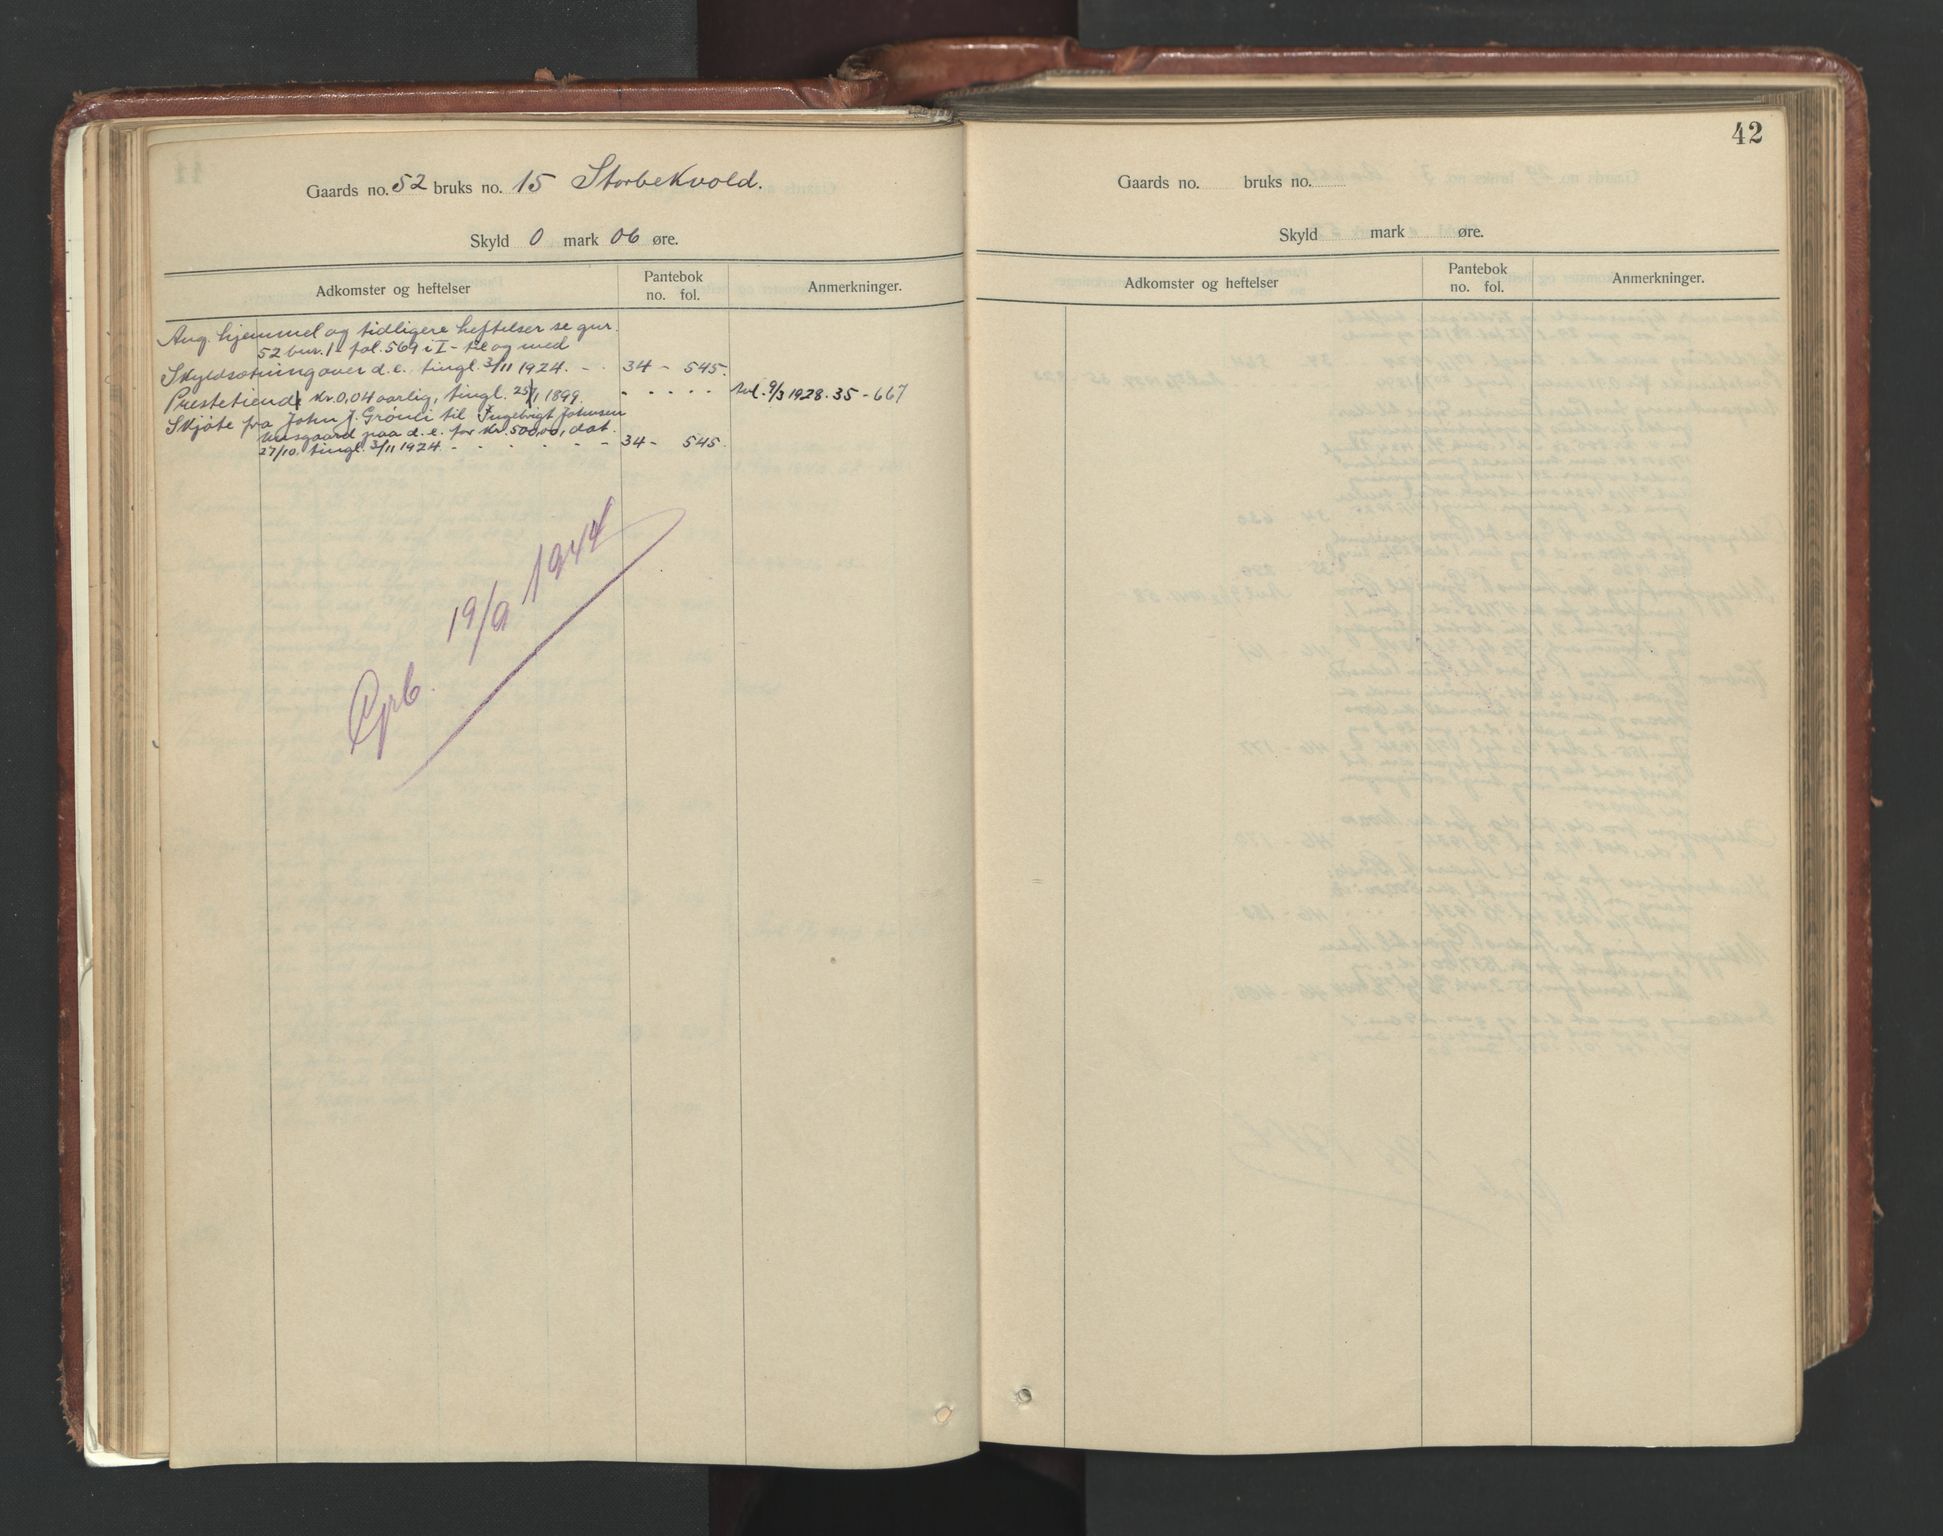 Gaards no. 52 bruks no. 15 Storbekvold.
Skyld 0 mark 06 øre.
Adkomster og heftelser
Pantebok
no. fol.
Anmerkninger.
Ang. hjemmel og tidligere heftelser se gnr.
52 bnr. 1 fol. 569 i I - til og med
Skyldsætning over d.e. tingl. 3/11 1924. - - 34 - 545.
Prestetiende kr. 0,04 aarlig, tingl. 25/1 1899. - - - - - Avl. 9/3 1928. 35 - 667
Skjøte fra John J. Grønli til Ingebrigt Johnsen
paa d.e. for kr. 500,00, dat.
27/10. tingl. 3/11 1924. - - - - - - 34 - 545.
19/9 1944
42
Gaards no. bruks no.
Skyld mark øre.
Adkomster og heftelser
Pantebok
no. fol.
Anmerkninger.